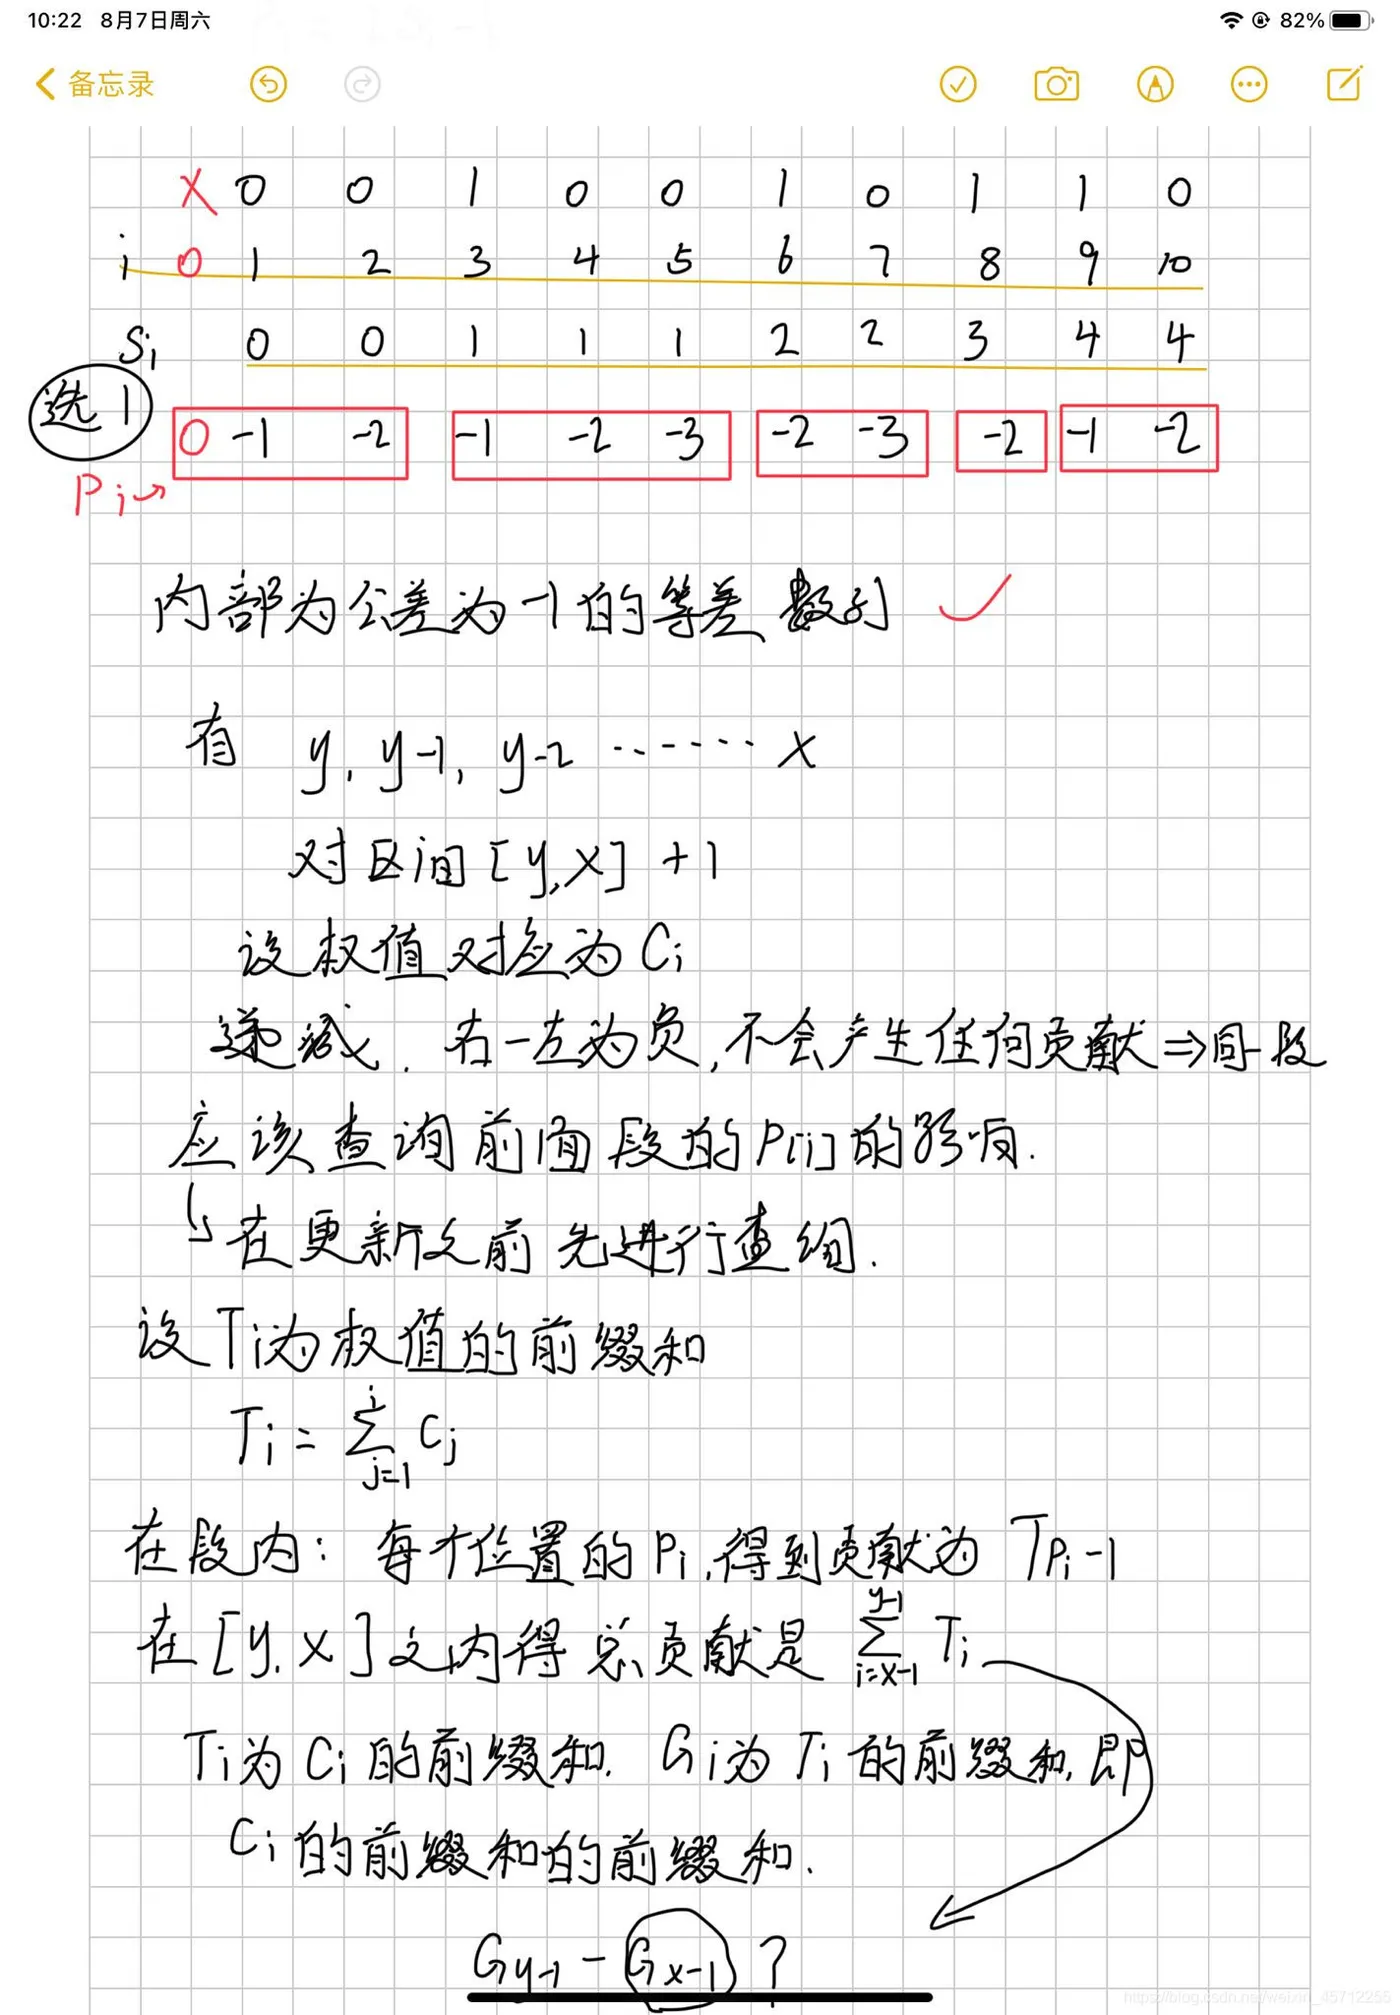 10:22 8月7日周六 82%
备忘录
X 0 0 1 0 0 1 0 1 1 0
i 0 1 2 3 4 5 6 7 8 9 10
Si 0 0 1 1 1 2 2 3 4 4
选1 0 -1 -2 -1 -2 -3 -2 -3 -2 -1 -2
Pi→
内部为公差为-1的等差数列 ✓
有 y, y-1, y-2 ······· x
对区间[y,x] +1
设权值对应为Ci
递减, 右-左为负,不会产生任何贡献⇒同一段
应该查询前面段的P[i]的影响.
↳在更新之前先进行查询.
设Ti为权值的前缀和
Ti = ∑_{j=1}^{i} Cj
在段内: 每个位置的Pi,得到贡献为 T_{Pi-1}
在[y,x]之内得总贡献是 ∑_{i=x-1}^{y-1} Ti
Ti为Ci的前缀和. Gi为Ti的前缀和,即
Ci的前缀和的前缀和.
G_{y-1} - G_{x-1} ?
https://blog.csdn.net/weixin_45712255